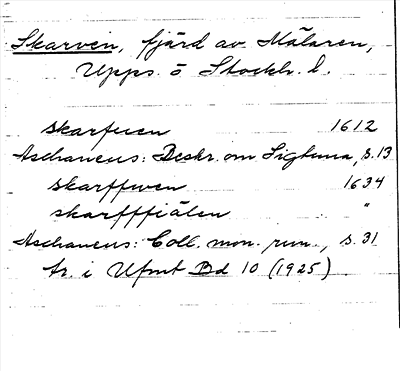 Skarven, fjärd av Mälaren,
Upps. o Stockh. l.
skarfuen 1612
Aschaneus: Beskr. om Sigtuna, s. 13
skarffwen 1634
skarffffiälen "
Aschaneus: Coll. mon. run., s. 31
tr. i Ufmt Bd 10 (1925)